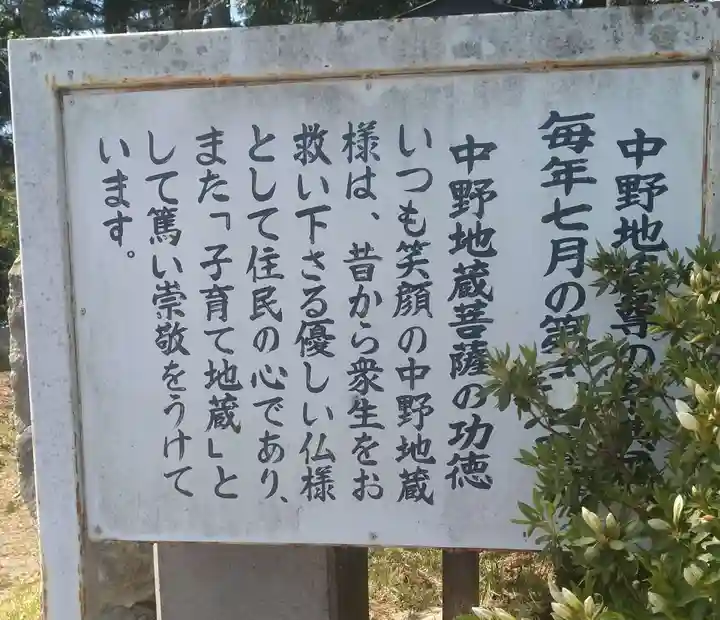 中野地
毎年七月の第
中野地蔵菩薩の功徳
いつも笑顔の中野地蔵
様は、昔から衆生をお
救い下さる優しい仏様
として住民の心であり、
また「子育て地蔵」と
して篤い崇敬をうけて
います。